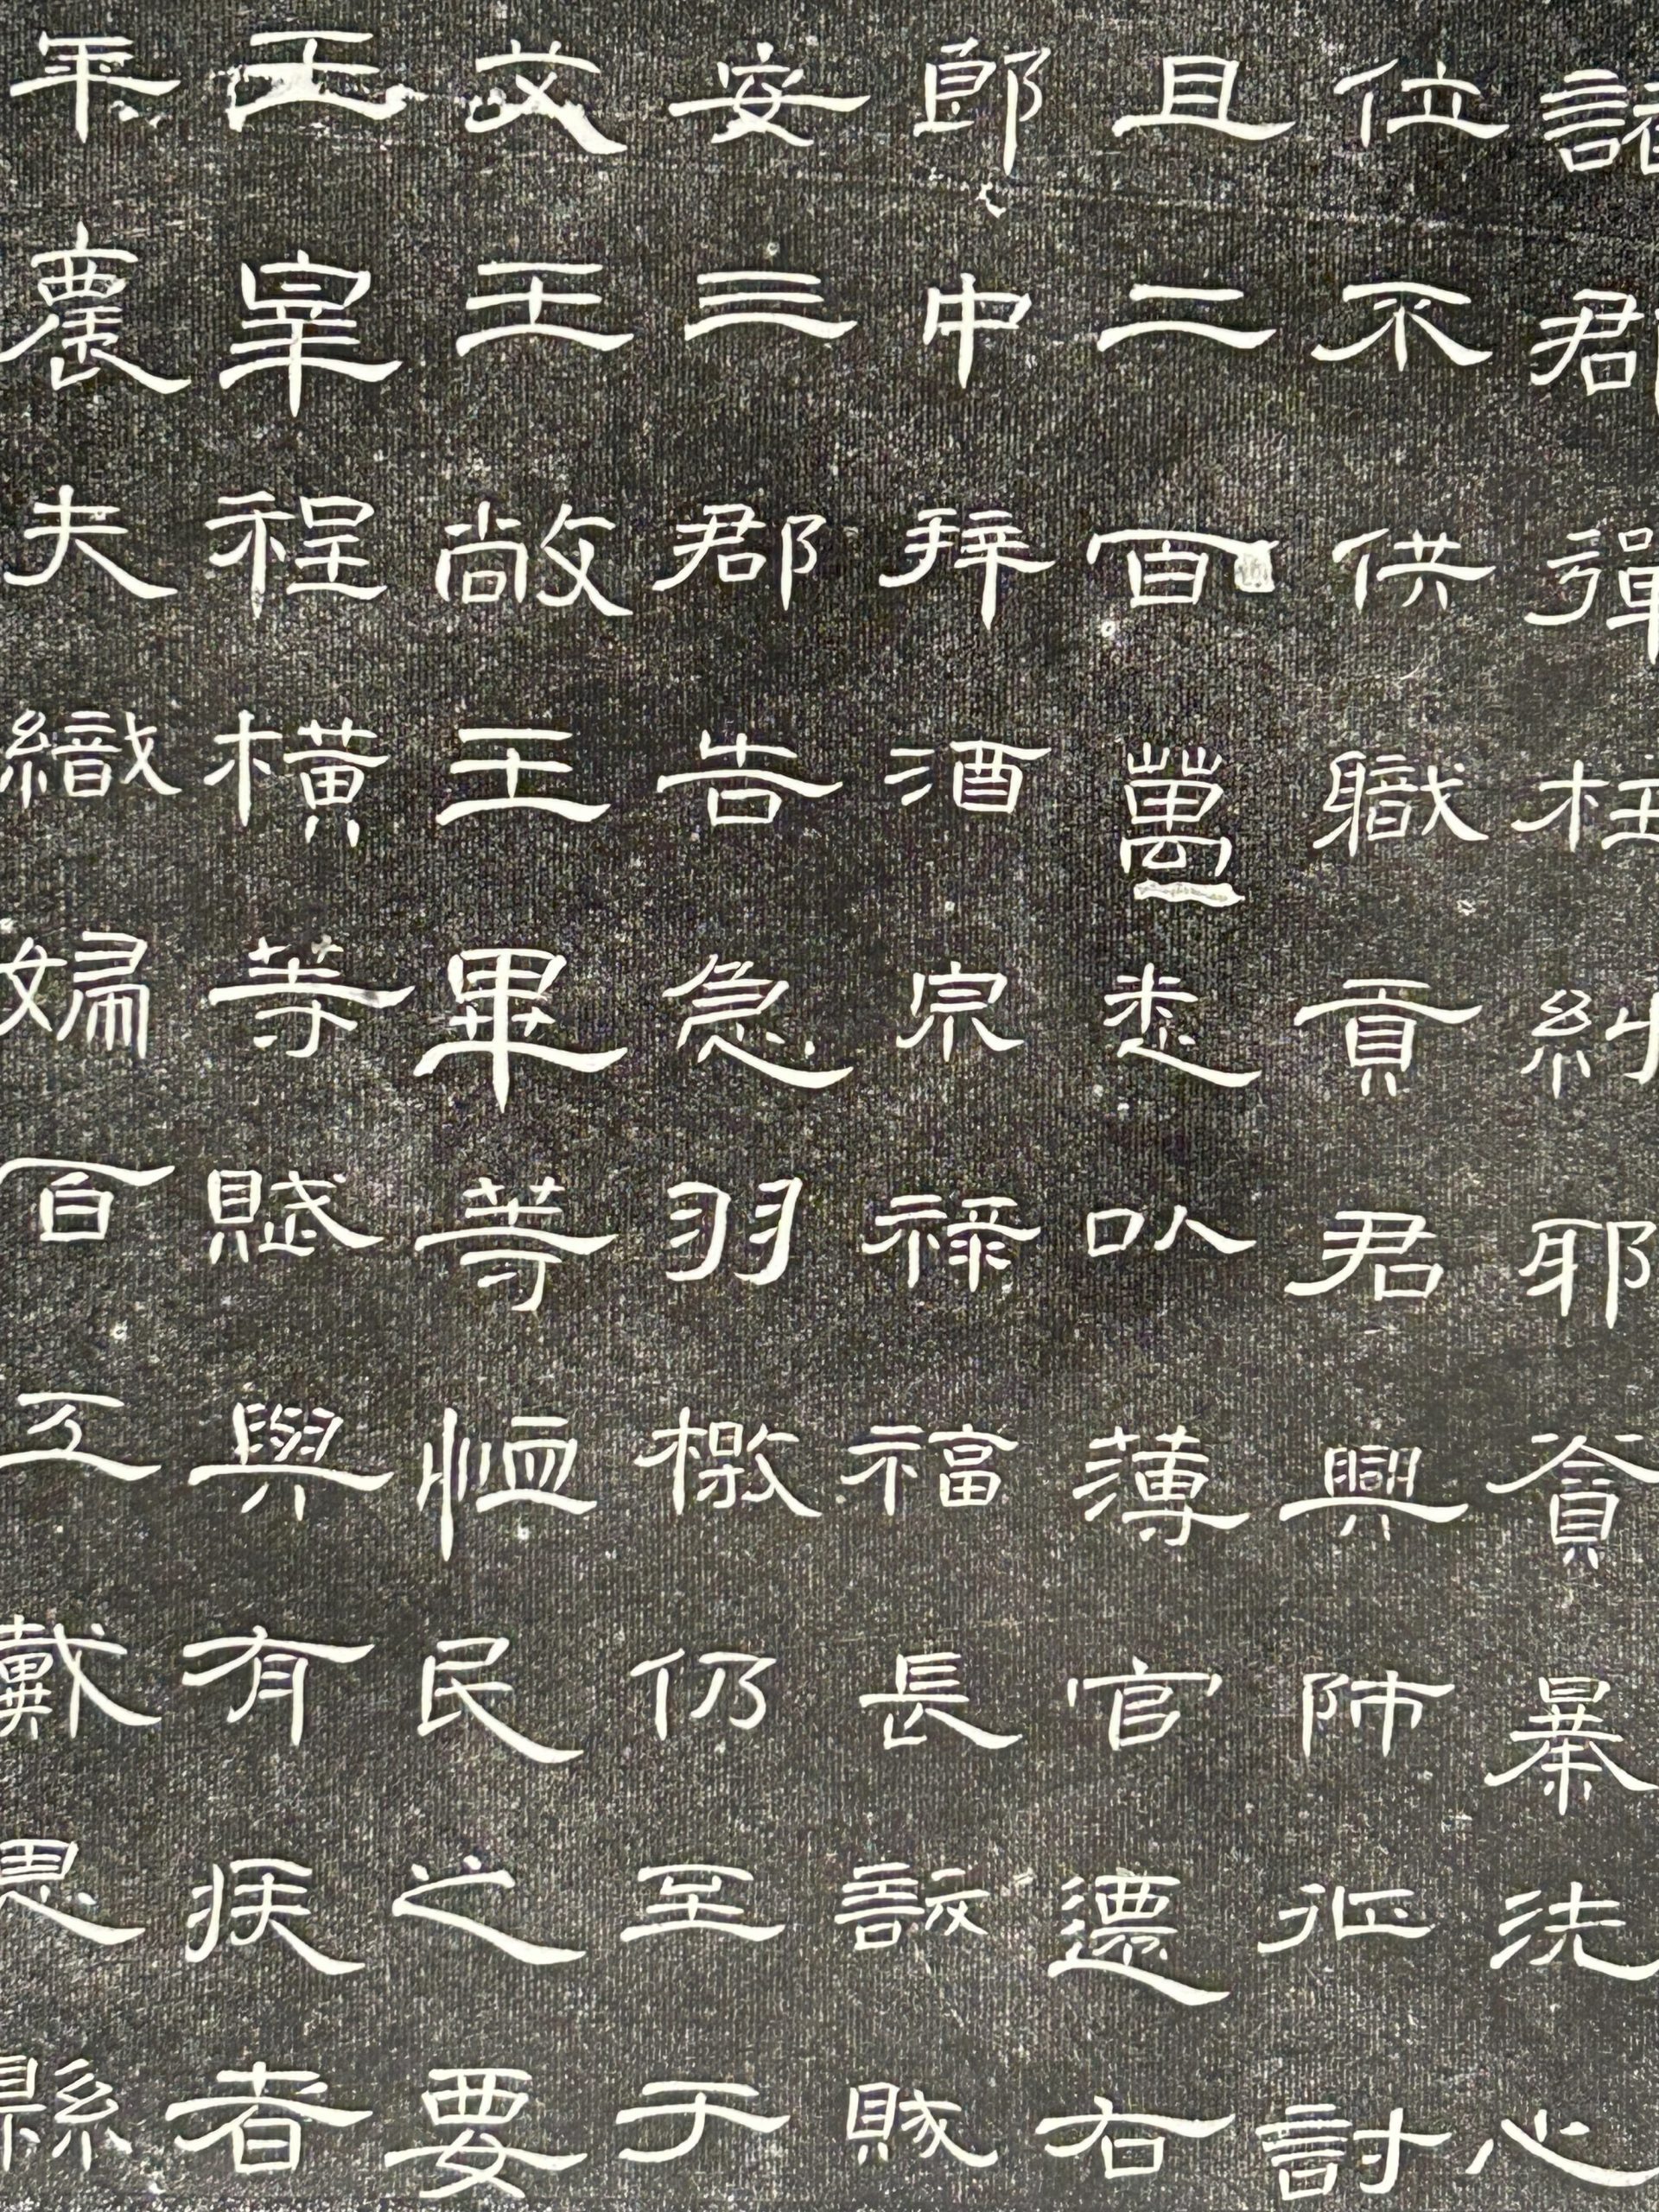 諸郡彈枉糾邪貪暴洗心
位不供職貢君興師征討
且二百萬悉以薄官遷右
郎中拜酒泉祿福長訞賊
安三郡告急羽檄仍至于
艾王敞王畢等恤民之要
王皋程橫等賦與有疾者
年農夫織婦百工戴恩縣